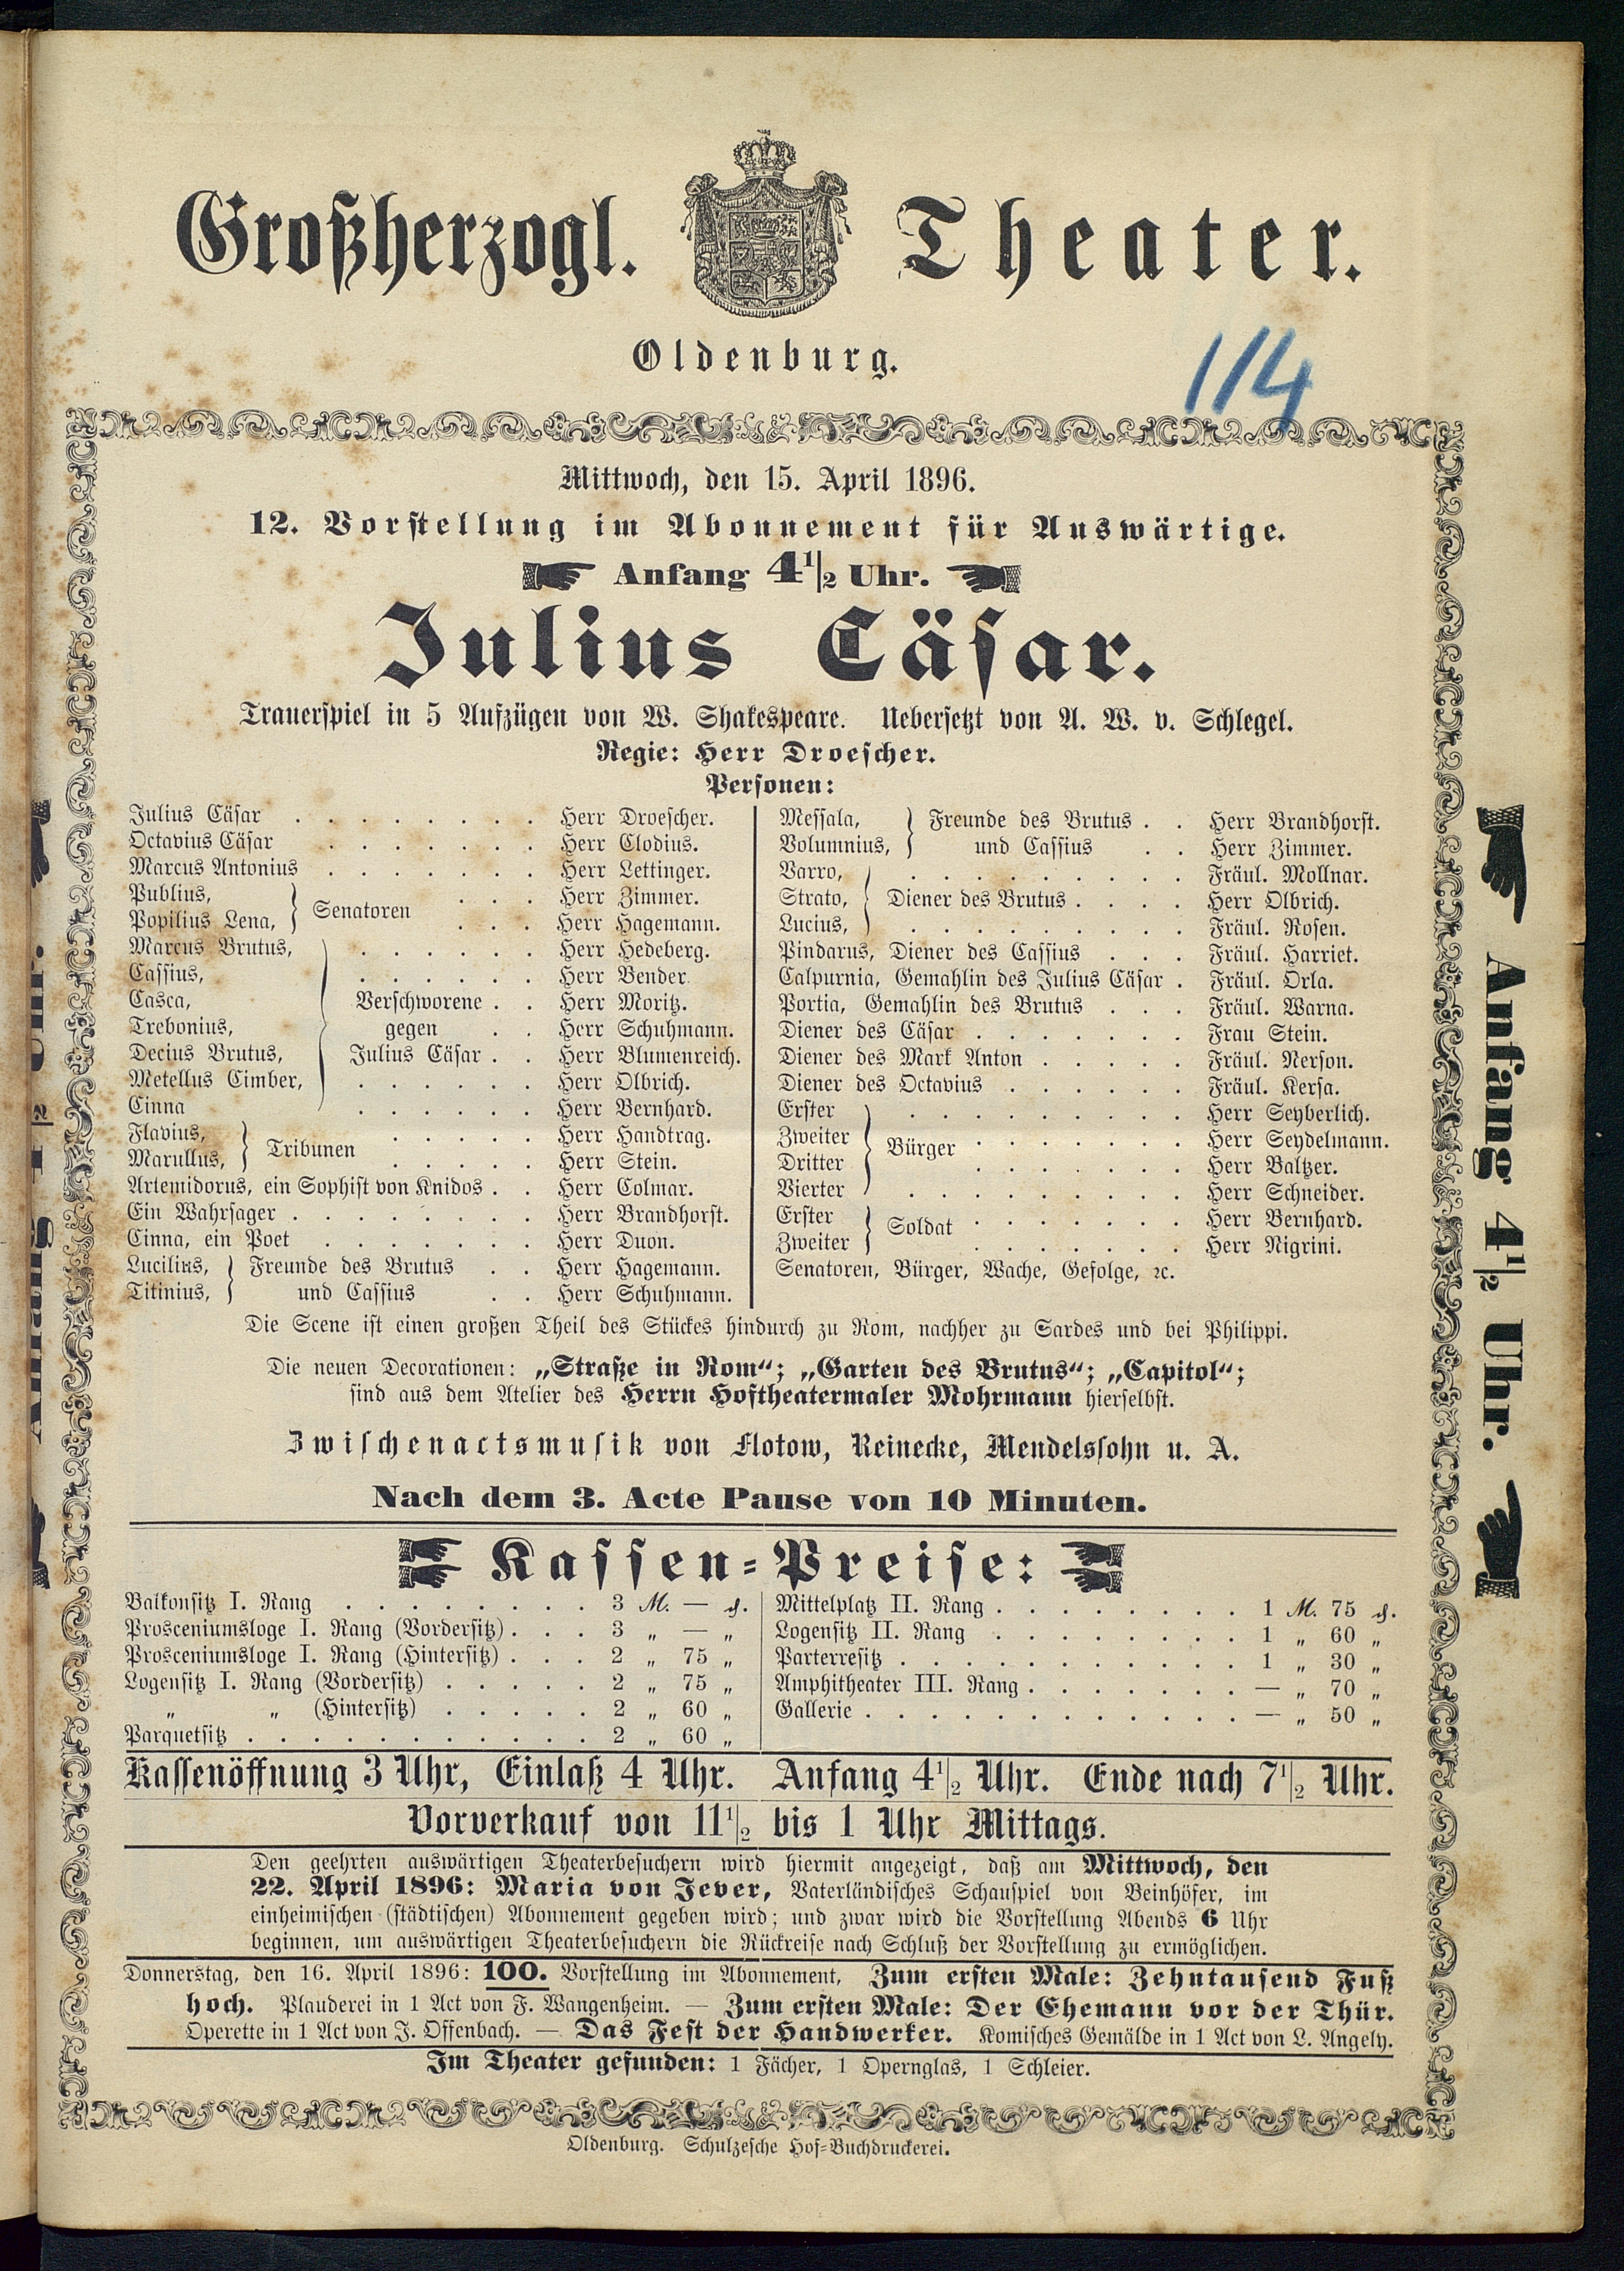 Großherzogl. Theater.
Oldenburg.
114
Mittwoch, den 15. April 1896.
12. Vorstellung im Abonnement für Auswärtige.
Anfang 4 1/2 Uhr.
Julius Cäsar.
Trauerspiel in 5 Aufzügen von W. Shakespeare. Uebersetzt von A. W. v. Schlegel.
Regie: Herr Droescher.
Personen:
Julius Cäsar . . . . . . . . Herr Droescher.
Octavius Cäsar . . . . . . . Herr Clodius.
Marcus Antonius . . . . . . . Herr Lettinger.
Publius, } Senatoren . . . Herr Zimmer.
Popilius Lena, } . . . Herr Hagemann.
Marcus Brutus, . . . . . . Herr Hedeberg.
Cassius, . . . . . . Herr Bender.
Casca, Verschworene . . Herr Moritz.
Trebonius, gegen . . Herr Schuhmann.
Decius Brutus, Julius Cäsar . . Herr Blumenreich.
Metellus Cimber, . . . . . . Herr Olbrich.
Cinna . . . . . . Herr Bernhard.
Flavius, } Tribunen . . . . . Herr Handtrag.
Marullus, } . . . . . Herr Stein.
Artemidorus, ein Sophist von Knidos . . Herr Colmar.
Ein Wahrsager . . . . . . . . Herr Brandhorst.
Cinna, ein Poet . . . . . . . Herr Duon.
Lucilius, } Freunde des Brutus . . Herr Hagemann.
Titinius, } und Cassius . . Herr Schuhmann.
Messala, } Freunde des Brutus . . Herr Brandhorst.
Volumnius, } und Cassius . . Herr Zimmer.
Varro, . . . . . . . . . Fräul. Mollnar.
Strato, Diener des Brutus . . . . Herr Olbrich.
Lucius, . . . . . . . . . Fräul. Rosen.
Pindarus, Diener des Cassius . . . Fräul. Harriet.
Calpurnia, Gemahlin des Julius Cäsar . Fräul. Orla.
Portia, Gemahlin des Brutus . . . Fräul. Warna.
Diener des Cäsar . . . . . . . Frau Stein.
Diener des Mark Anton . . . . . Fräul. Nerson.
Diener des Octavius . . . . . . Fräul. Kersa.
Erster . . . . . . . . . Herr Seyberlich.
Zweiter Bürger . . . . . . . Herr Seydelmann.
Dritter . . . . . . . Herr Baltzer.
Vierter . . . . . . . . . Herr Schneider.
Erster } Soldat . . . . . . . Herr Bernhard.
Zweiter } . . . . . . . Herr Nigrini.
Senatoren, Bürger, Wache, Gefolge, ꝛc.
Die Scene ist einen großen Theil des Stückes hindurch zu Rom, nachher zu Sardes und bei Philippi.
Die neuen Decorationen: „Straße in Rom“; „Garten des Brutus“; „Capitol“;
sind aus dem Atelier des Herrn Hoftheatermaler Mohrmann hierselbst.
Zwischenactsmusik von Flotow, Reinecke, Mendelssohn u. A.
Nach dem 3. Acte Pause von 10 Minuten.
Kassen-Preise:
Balkonsitz I. Rang . . . . . . . . 3 M. — ₰.
Prosceniumsloge I. Rang (Vordersitz) . . . 3 „ — „
Prosceniumsloge I. Rang (Hintersitz) . . . 2 „ 75 „
Logensitz I. Rang (Vordersitz) . . . . . 2 „ 75 „
„ „ (Hintersitz) . . . . . 2 „ 60 „
Parquetsitz . . . . . . . . . . . 2 „ 60 „
Mittelplatz II. Rang . . . . . . . . 1 M. 75 ₰.
Logensitz II. Rang . . . . . . . . 1 „ 60 „
Parterresitz . . . . . . . . . . . 1 „ 30 „
Amphitheater III. Rang . . . . . . . — „ 70 „
Gallerie . . . . . . . . . . . . — „ 50 „
Kassenöffnung 3 Uhr, Einlaß 4 Uhr. Anfang 4 1/2 Uhr. Ende nach 7 1/2 Uhr.
Vorverkauf von 11 1/2 bis 1 Uhr Mittags.
Den geehrten auswärtigen Theaterbesuchern wird hiermit angezeigt, daß am Mittwoch, den
22. April 1896: Maria von Jever, Vaterländisches Schauspiel von Beinhöfer, im
einheimischen (städtischen) Abonnement gegeben wird; und zwar wird die Vorstellung Abends 6 Uhr
beginnen, um auswärtigen Theaterbesuchern die Rückreise nach Schluß der Vorstellung zu ermöglichen.
Donnerstag, den 16. April 1896: 100. Vorstellung im Abonnement, Zum ersten Male: Zehntausend Fuß
hoch. Plauderei in 1 Act von F. Wangenheim. — Zum ersten Male: Der Ehemann vor der Thür.
Operette in 1 Act von J. Offenbach. — Das Fest der Handwerker. Komisches Gemälde in 1 Act von L. Angely.
Im Theater gefunden: 1 Fächer, 1 Opernglas, 1 Schleier.
Oldenburg. Schulzesche Hof-Buchdruckerei.
Anfang 4 1/2 Uhr.